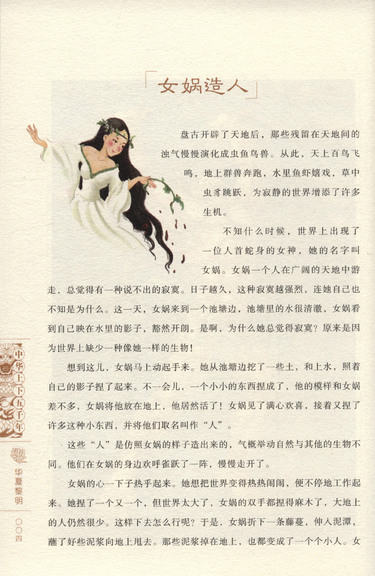 女娲造人
盘古开辟了天地后，那些残留在天地间的
浊气慢慢演化成虫鱼鸟兽。从此，天上百鸟飞
鸣，地上群兽奔跑，水里鱼虾嬉戏，草中
虫豸跳跃，为寂静的世界增添了许多
生机。
不知什么时候，世界上出现了
一位人首蛇身的女神，她的名字叫
女娲。女娲一个人在广阔的天地中游
走，总觉得有一种说不出的寂寞。日子越久，这种寂寞越强烈，连她自己也
不知是为什么。这一天，女娲来到一个池塘边，池塘里的水很清澈，女娲看
到自己映在水里的影子，豁然开朗。是啊，为什么她总觉得寂寞？原来是因
为世界上缺少一种像她一样的生物！
想到这儿，女娲马上动起手来。她从池塘边挖了一些土，和上水，照着
自己的影子捏了起来。不一会儿，一个小小的东西捏成了，他的模样和女娲
差不多，女娲将他放在地上，他居然活了！女娲见了满心欢喜，接着又捏了
许多这种小东西，并将他们取名叫作“人”。
这些“人”是仿照女娲的样子造出来的，气概举动自然与其他的生物不
同。他们在女娲的身边欢呼雀跃了一阵，慢慢走开了。
女娲的心一下子热乎起来。她想把世界变得热热闹闹，便不停地工作起
来。她捏了一个又一个，但世界太大了，女娲的双手都捏得麻木了，大地上
的人仍然很少。这样下去怎么行呢？于是，女娲折下一条藤蔓，伸入泥潭，
蘸了好些泥浆向地上甩去。那些泥浆掉在地上，也都变成了一个个小人。女
中华上下五千年
华夏黎明
〇〇四